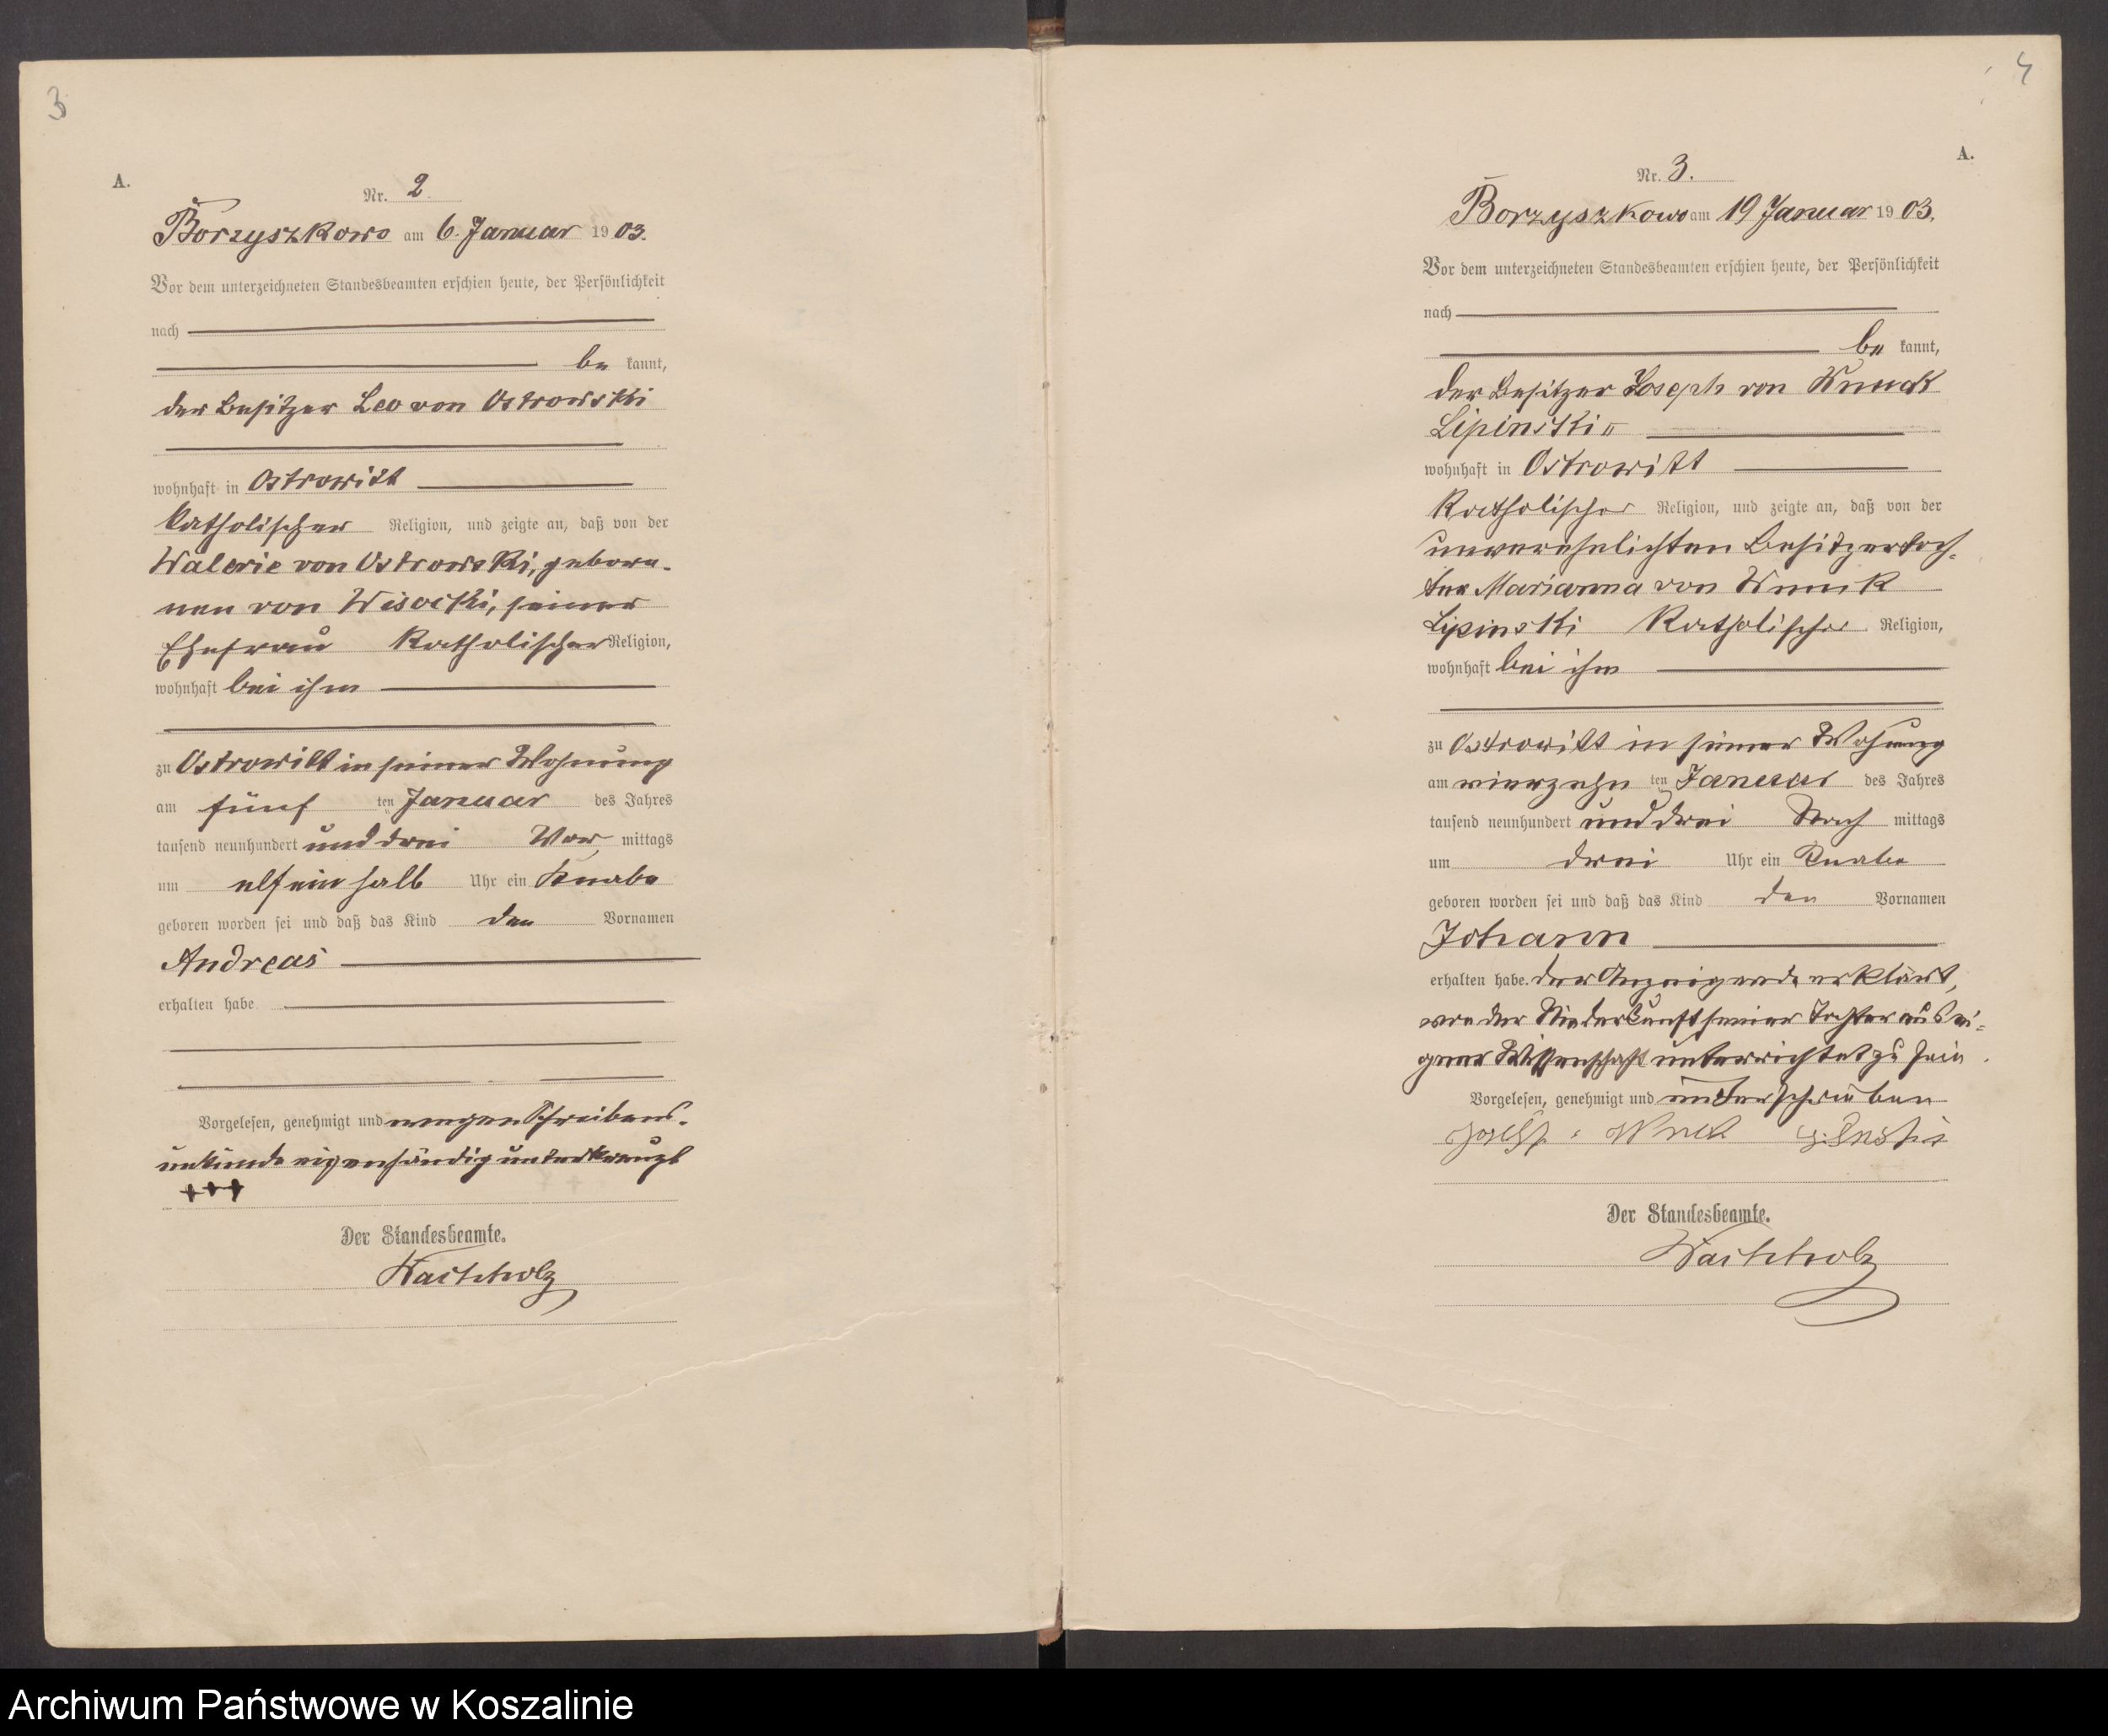 3
A.
Nr. 2.
Borzyszkowo am 6. Januar 1903.
Vor dem unterzeichneten Standesbeamten erschien heute, der Persönlichkeit
nach
be kannt,
der Besitzer Leo von Ostrowski
wohnhaft in Ostrowitt
katholischer Religion, und zeigte an, daß von der
Walerie von Ostrowski, gebore-
nen von Wisocki, seiner
Ehefrau katholischer Religion,
wohnhaft bei ihm
zu Ostrowitt in seiner Wohnung
am fünf ten Januar des Jahres
tausend neunhundert und drei Vor mittags
um elf ein halb Uhr ein Knabe
geboren worden sei und daß das Kind den Vornamen
Andreas
erhalten habe.
Vorgelesen, genehmigt und wegen Schreibens-
unkunde eigenhändig unterkreuzt
+++
Der Standesbeamte.
Wachholz
4
A.
Nr. 3.
Borzyszkowo am 19 Januar 1903.
Vor dem unterzeichneten Standesbeamten erschien heute, der Persönlichkeit
nach
be kannt,
der Besitzer Joseph von Wnuck
Lipinski II
wohnhaft in Ostrowitt
katholischer Religion, und zeigte an, daß von der
unverehelichten Besitzertoch-
ter Marianna von Wnuk
Lipinski katholischer Religion,
wohnhaft bei ihm
zu Ostrowitt in seiner Wohnung
am vierzehn ten Januar des Jahres
tausend neunhundert und drei Nach mittags
um drei Uhr ein Knabe
geboren worden sei und daß das Kind den Vornamen
Johann
erhalten habe. Der Anzeigende erklärt,
von der Niederkunft seiner Tochter aus ei-
gener Wissenschaft unterrichtet zu sein.
Vorgelesen, genehmigt und unterschrieben
Der Standesbeamte.
Wachholz
Archiwum Państwowe w Koszalinie